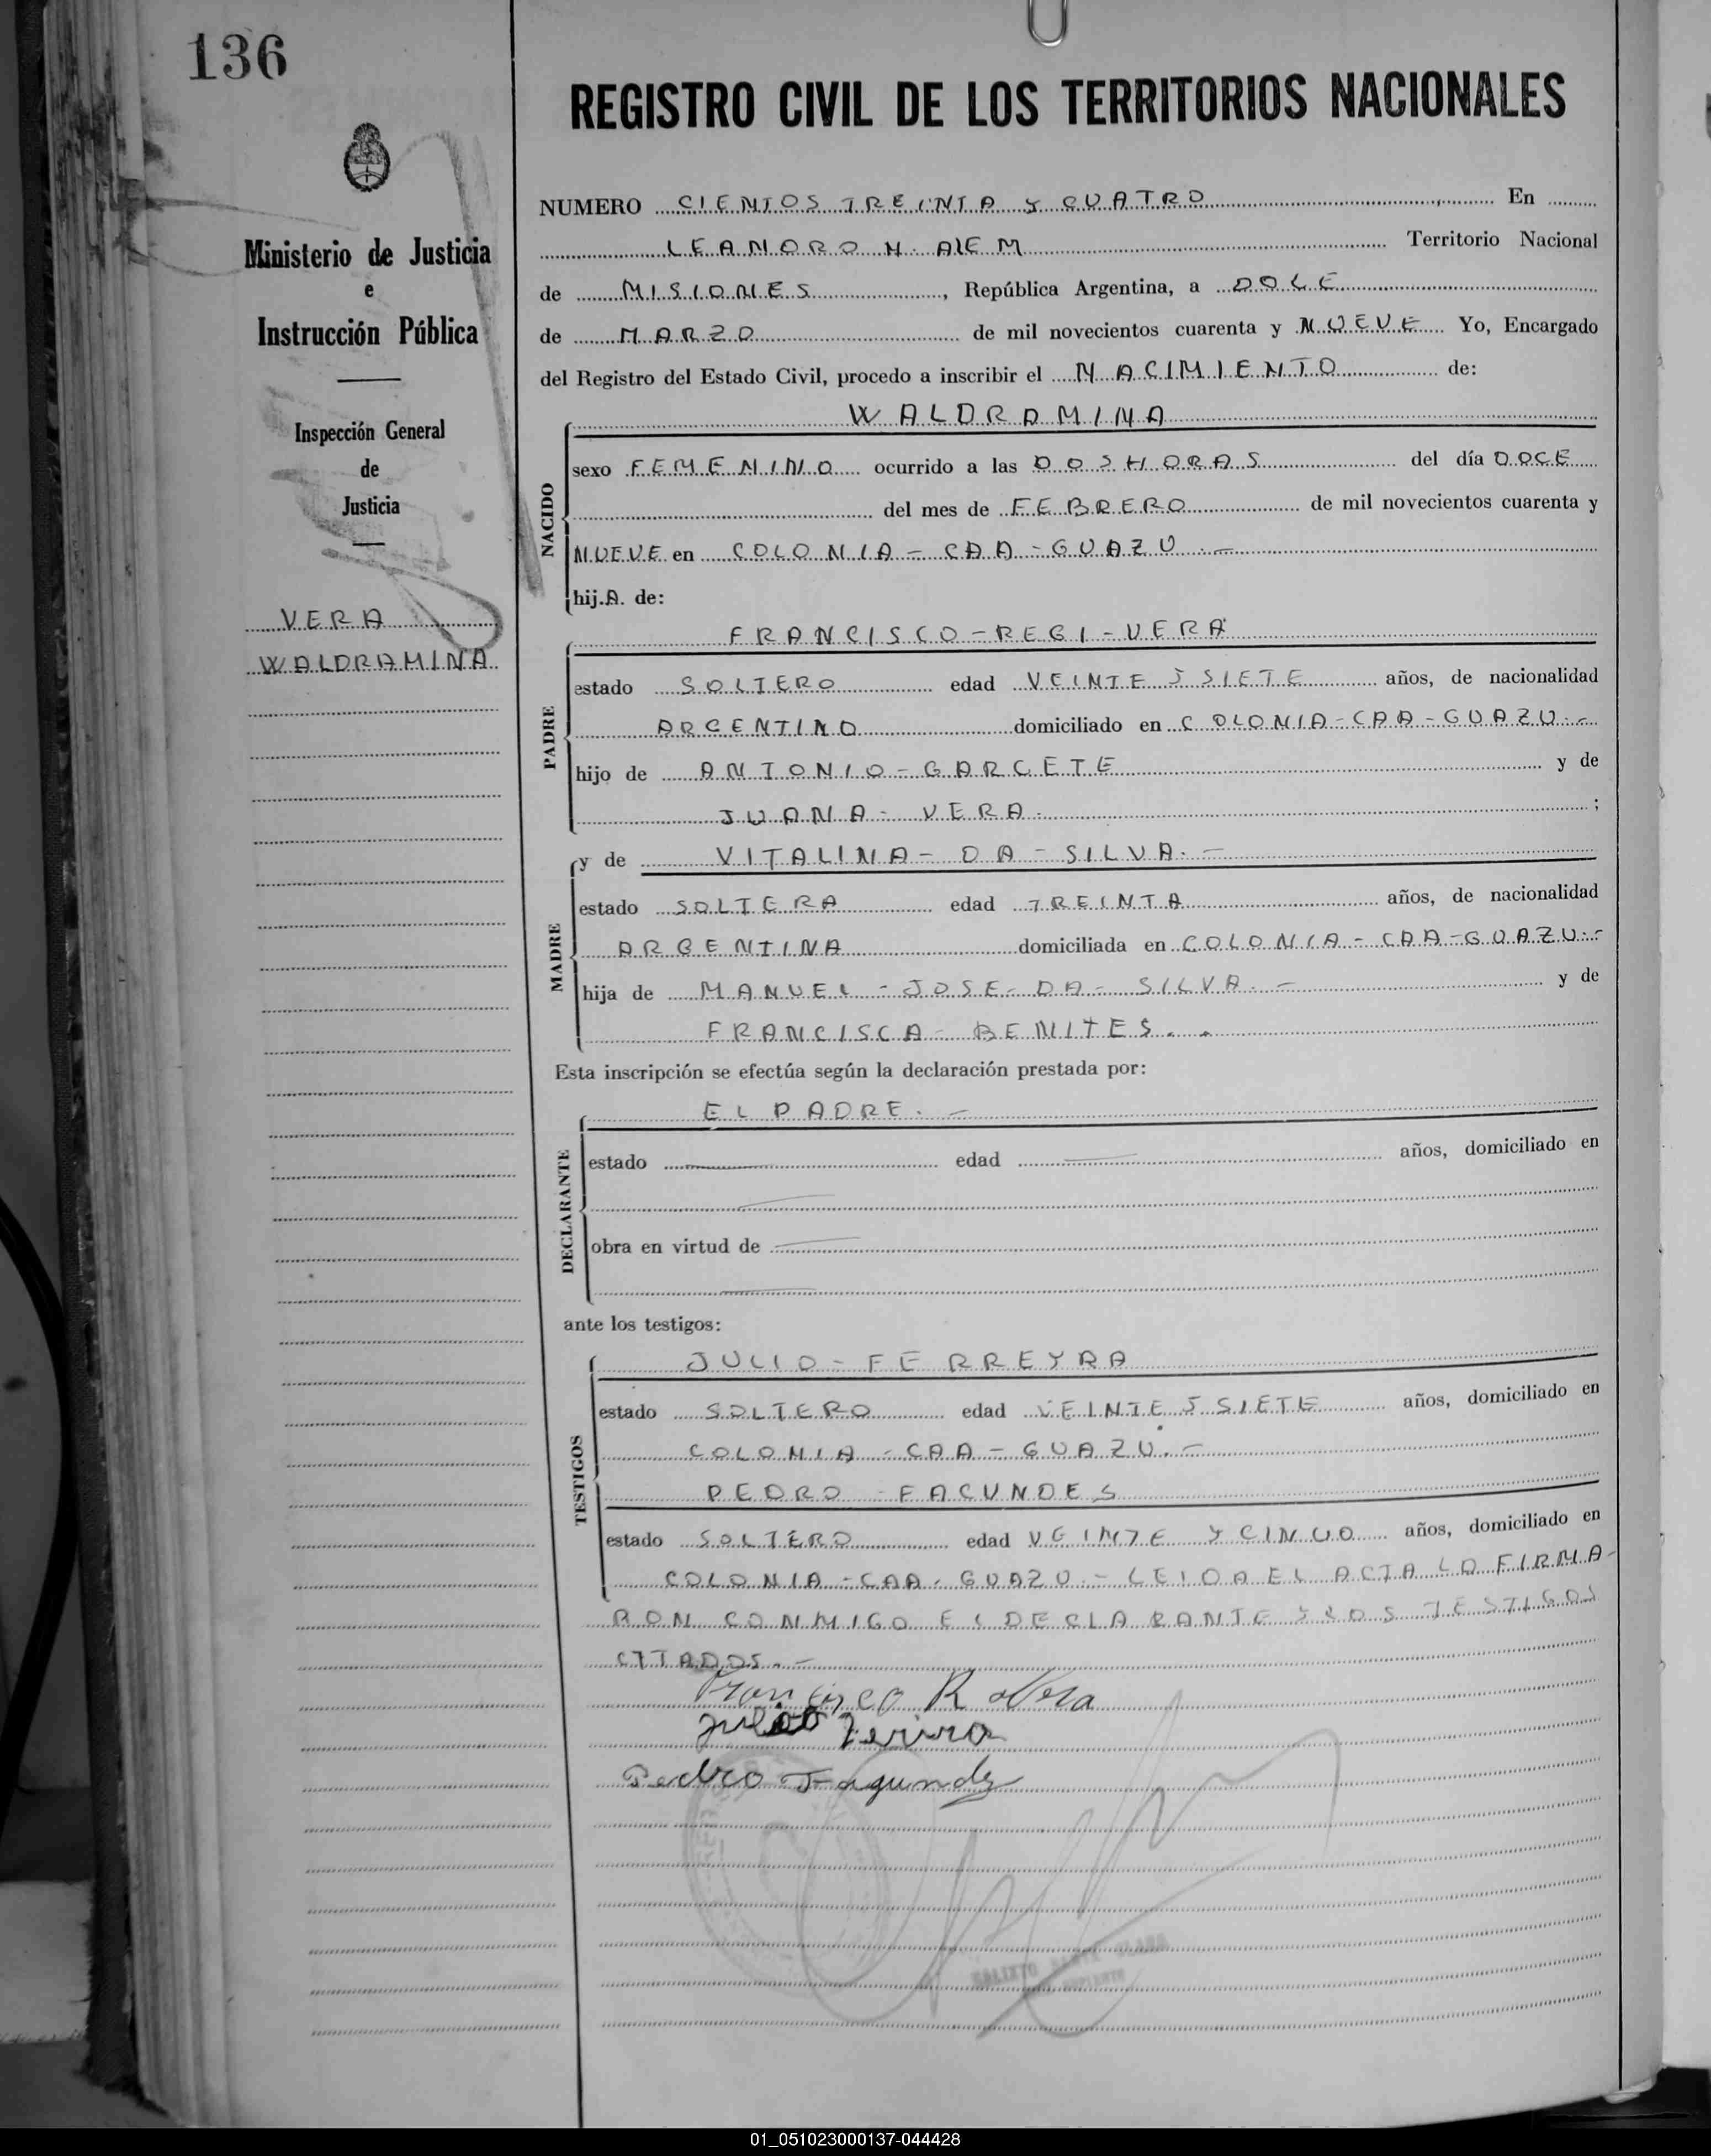 136
REGISTRO CIVIL DE LOS TERRITORIOS NACIONALES
Ministerio de Justicia
e
Instrucción Pública
Inspección General
de
Justicia
VERA
WALDRAMINA
NUMERO CIENTOS TREINTA Y CUATRO En
LEANDRO N. ALEM Territorio Nacional
de MISIONES, República Argentina, a DOCE
de MARZO de mil novecientos cuarenta y NUEVE Yo, Encargado
del Registro del Estado Civil, procedo a inscribir el NACIMIENTO de:
WALDRAMINA
NACIDO
sexo FEMENINO ocurrido a las DOS HORAS del día DOCE
del mes de FEBRERO de mil novecientos cuarenta y
NUEVE en COLONIA - CAA - GUAZU . -
hij.A. de:
FRANCISCO - REGI - VERA
PADRE
estado SOLTERO edad VEINTE Y SIETE años, de nacionalidad
ARGENTINO domiciliado en COLONIA - CAA - GUAZU . -
hijo de ANTONIO - GARCETE y de
JUANA - VERA. ;
y de VITALINA - DA - SILVA. -
MADRE
estado SOLTERA edad TREINTA años, de nacionalidad
ARGENTINA domiciliada en COLONIA - CAA - GUAZU. -
hija de MANUEL - JOSE - DA - SILVA. - y de
FRANCISCA - BENITES. .
Esta inscripción se efectúa según la declaración prestada por:
EL PADRE. -
DECLARANTE
estado edad años, domiciliado en
obra en virtud de
ante los testigos:
JULIO - FERREYRA
TESTIGOS
estado SOLTERO edad VEINTE Y SIETE años, domiciliado en
COLONIA - CAA - GUAZU. -
PEDRO - FACUNDES
estado SOLTERO edad VEINTE Y CINUO años, domiciliado en
COLONIA - CAA - GUAZU. - LEIDA EL ACTA LO FIRMA-
RON CONMIGO EL DECLARANTE Y LOS TESTIGOS
CITADOS. -
Francisco R Vera
Julio Ferira
Pedro Fagundez
01_051023000137-044428